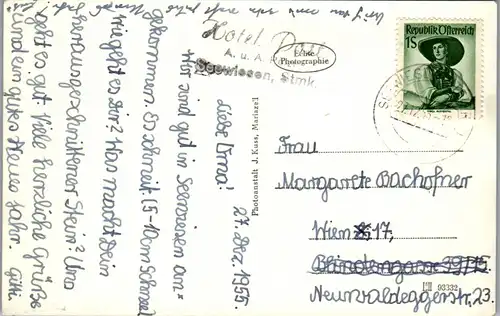 Hotel Post
A. u. A.
Seewiesen, Stmk.
Echte
Photographie
Republik Österreich
1S
Photoanstalt J. Kuss, Mariazell
27. Dez. 1955.
Liebe Oma!
Wir sind gut in Seewiesen an=
gekommen. Es schneit (5-10cm Schnee)
Wie geht es Dir? Was macht Dein
herausgeschnittener Stein? Uns
geht es gut. Viele herzliche Grüße
und ein gutes Neues Jahr. Gitti.
Frau
Margarete Bachofner
Wien 17,
Blindengasse 39/15
Neuwaldeggerstr. 23.
93332